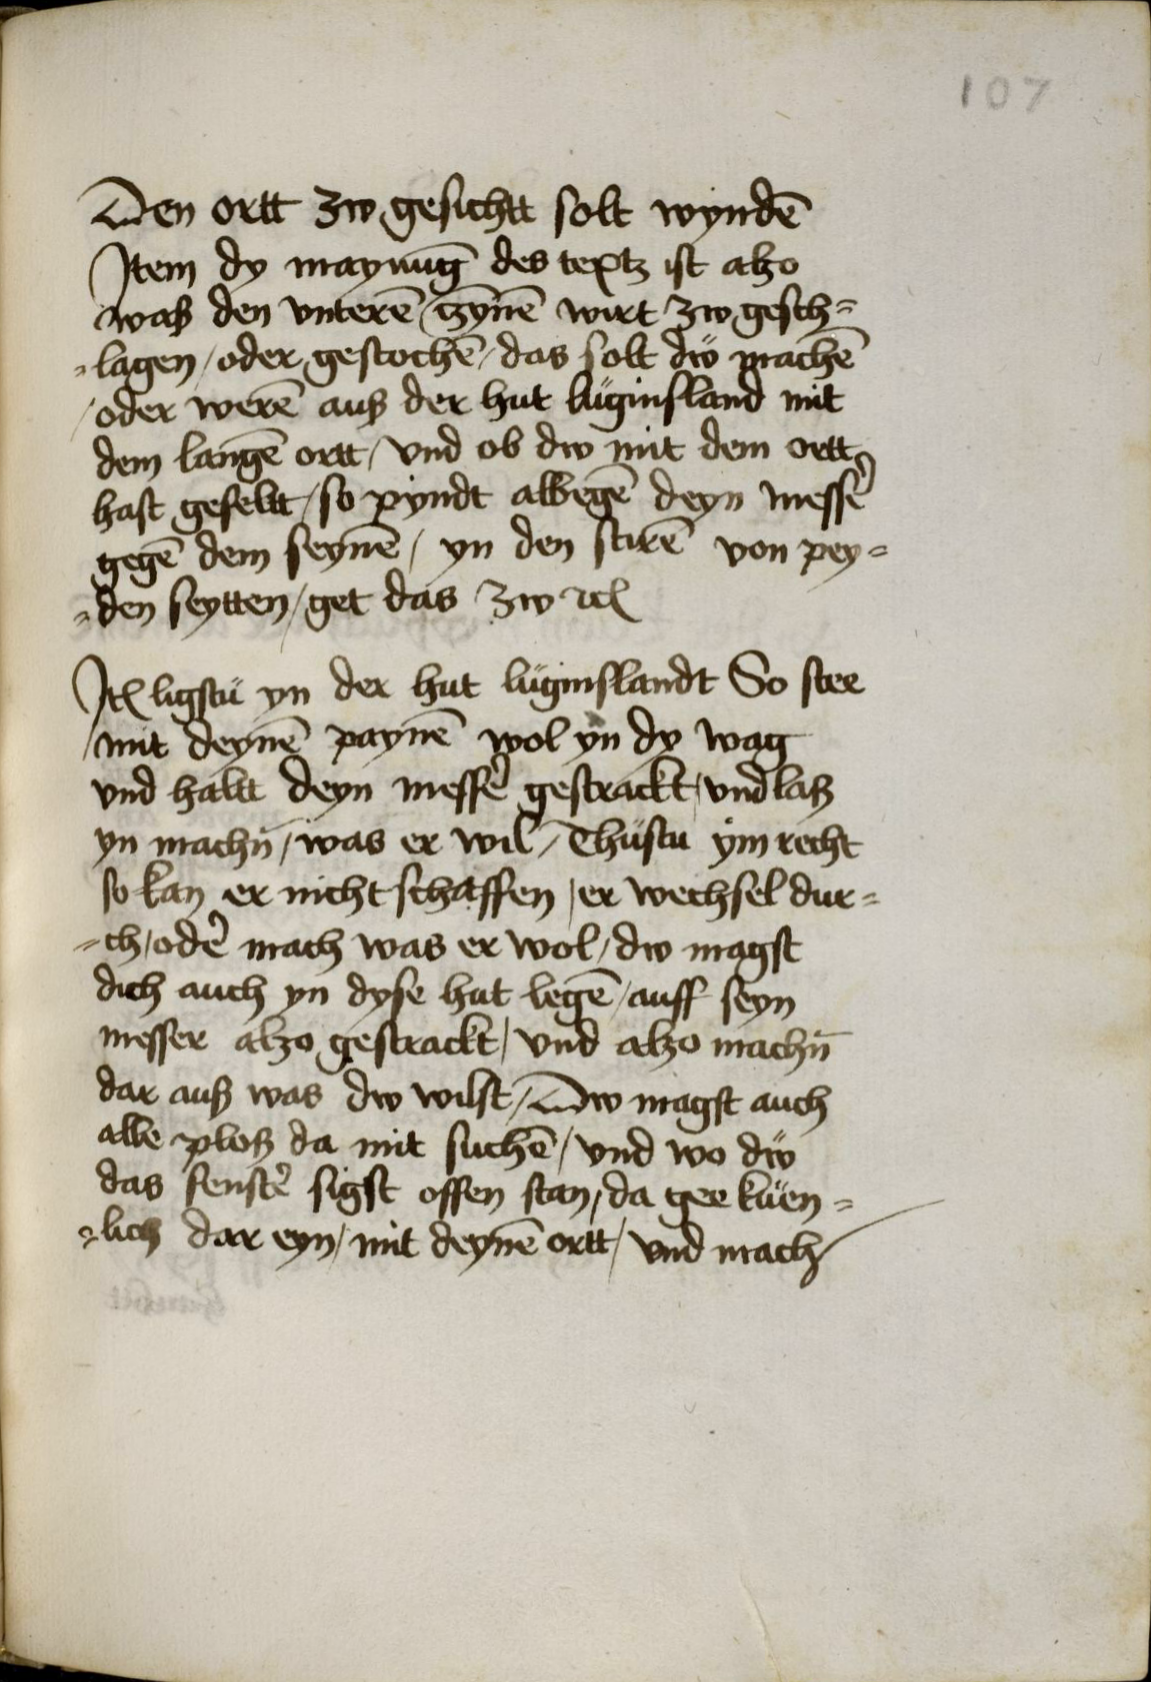 107
Den ortt zw gesichtt solt wyndē
Item dy maynūg des textz ist alzo
waß den vnterē zynē wirt zw gesch=
=lagen / oder gestochē / das solt dẅ machē
/ oder werē auß der hut lüginsland mit
dem langē ortt / vnd ob dw mit dem ortt
hast gefeltt / so pyndt allbegē deyn messer
gegē dem seynē / yn den stirē von pey=
=den seytten / get das zw etc
Itē ligstu yn der hut lüginslandt So stee
/ mit deynē paynē wol yn dy wag
vnd haltt deyn messer gestrackt / vnd laß
yn machn̄ / was er wil / Thüstu ym recht
so kan er nicht schaffen / er wechsel dur=
=ch / oder mach was er wol / dw magst
dich auch yn dyse hut legē / auff seyn
messer alzo gestrackt / vnd alzo machn̄
dar auß was dw wilst / Dw magst auch
alle ploß da mit suchē / vnd wo dẅ
das fenster sigst offen stan / da gee küen=
=lich dar eyn / mit deynē ortt / vnd mach